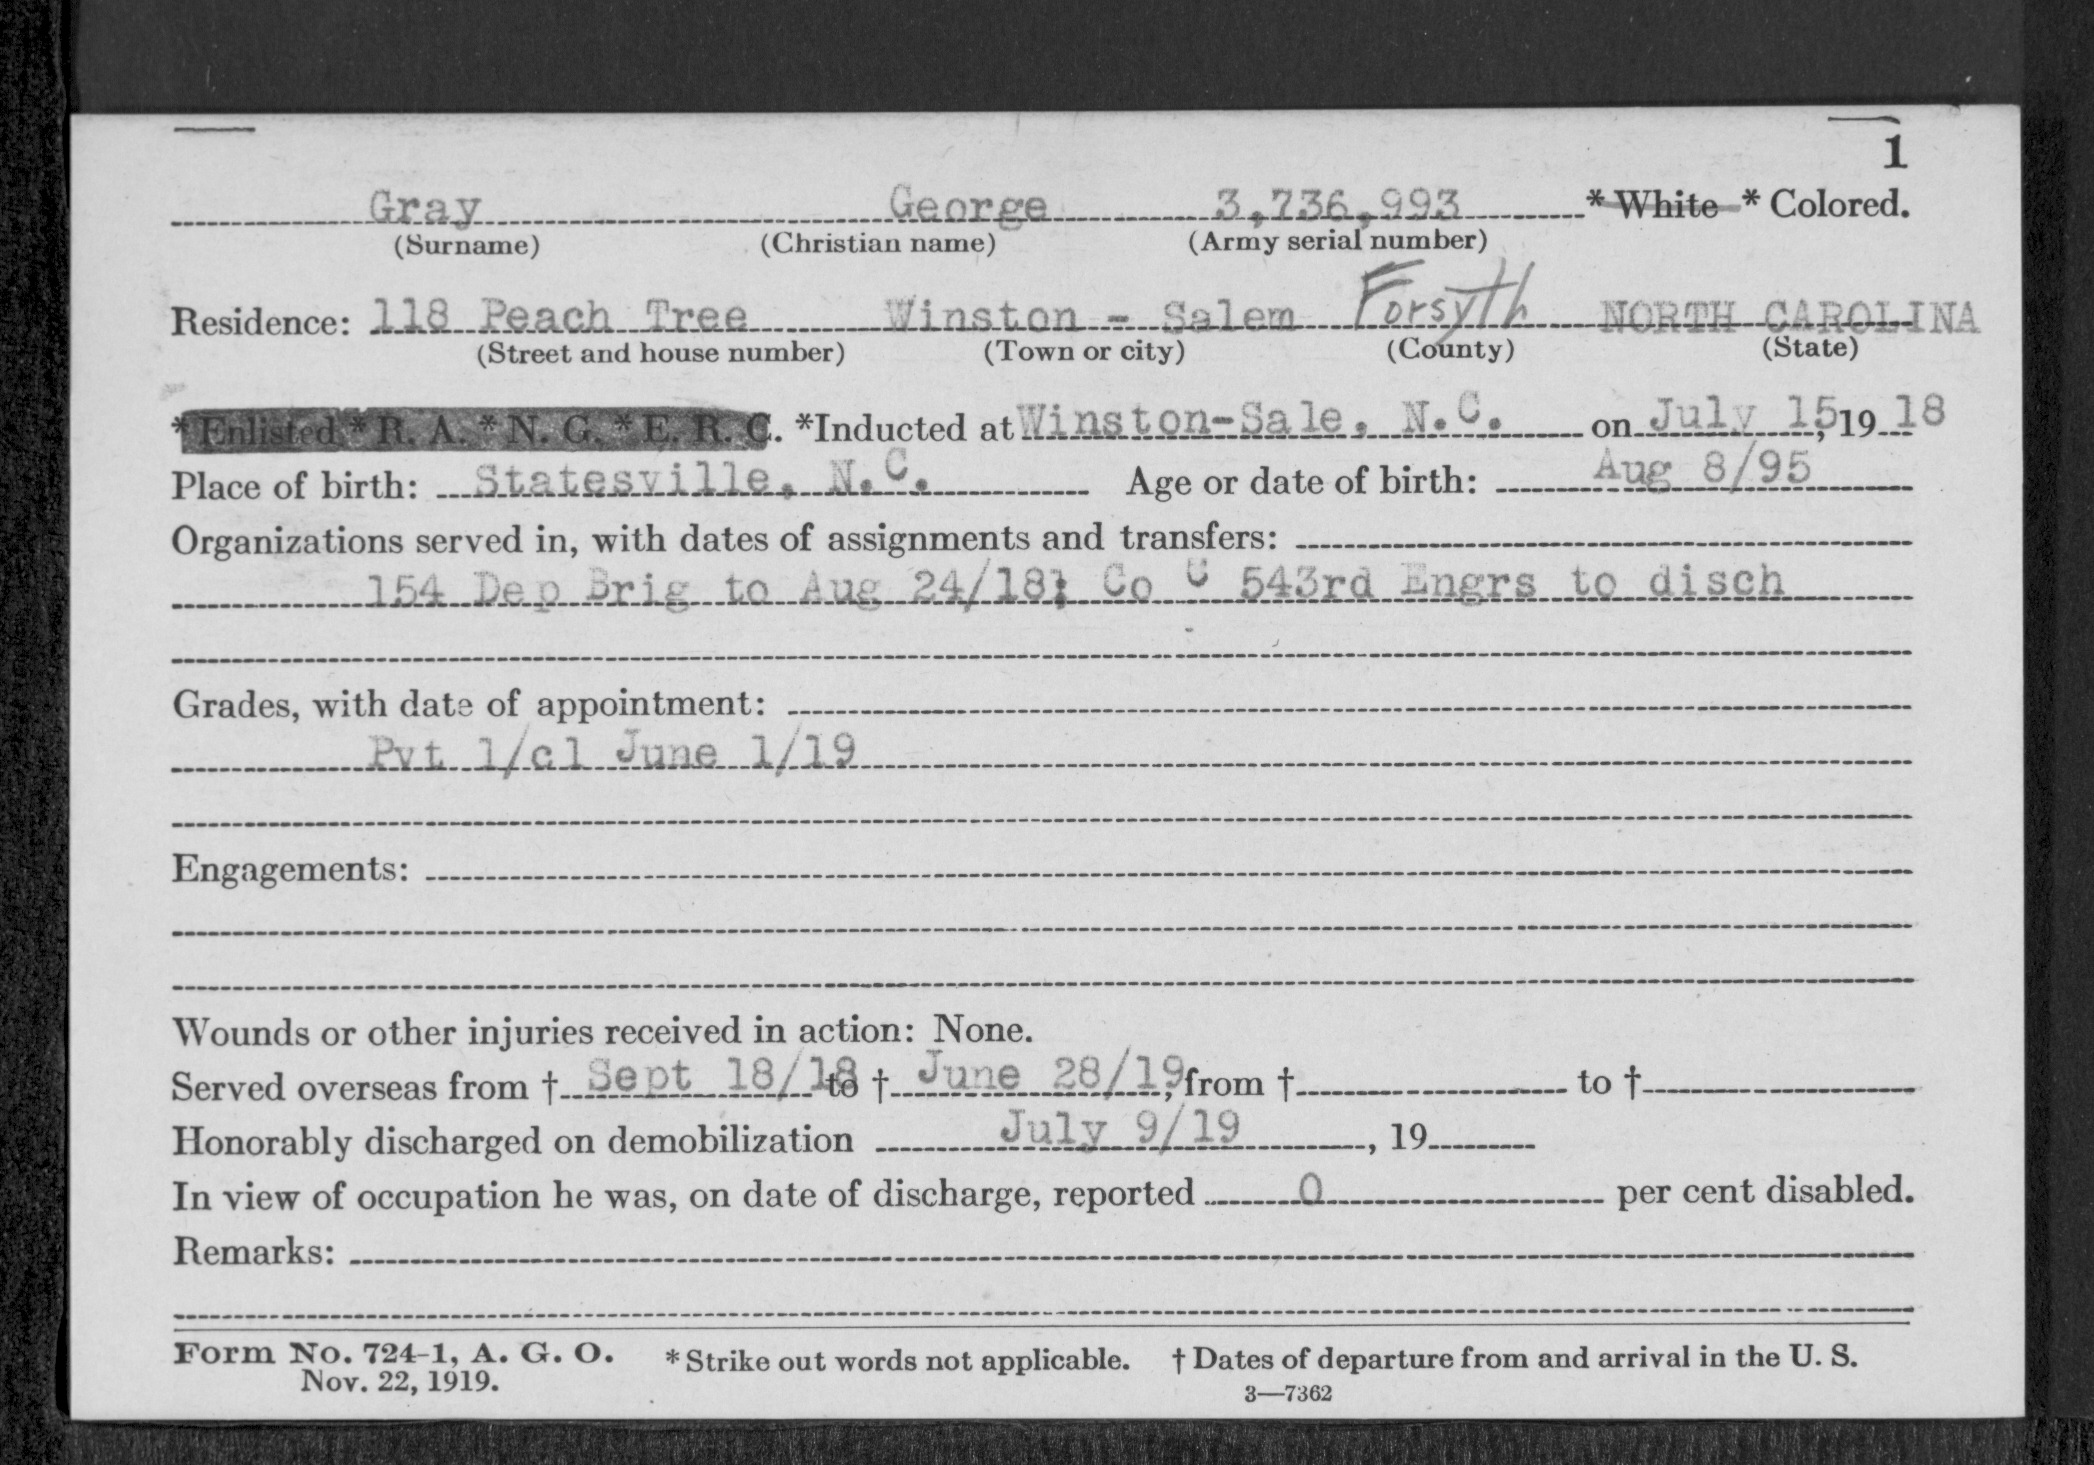 1
Gray George 3,736,993 * White * Colored.
(Surname) (Christian name) (Army serial number)
Residence: 118 Peach Tree Winston - Salem Forsyth NORTH CAROLINA
(Street and house number) (Town or city) (County) (State)
* Enlisted * R. A. * N. G. * E. R. C. *Inducted at Winston-Sale, N.C. on July 15, 19 18
Place of birth: Statesville, N.C. Age or date of birth: Aug 8/95
Organizations served in, with dates of assignments and transfers:
154 Dep Brig to Aug 24/18; Co C 543rd Engrs to disch
Grades, with date of appointment:
Pvt 1/cl June 1/19
Engagements:
Wounds or other injuries received in action: None.
Served overseas from † Sept 18/18 to † June 28/19, from † to †
Honorably discharged on demobilization July 9/19, 19
In view of occupation he was, on date of discharge, reported 0 per cent disabled.
Remarks:
Form No. 724-1, A. G. O. * Strike out words not applicable. † Dates of departure from and arrival in the U. S.
Nov. 22, 1919.
3—7362